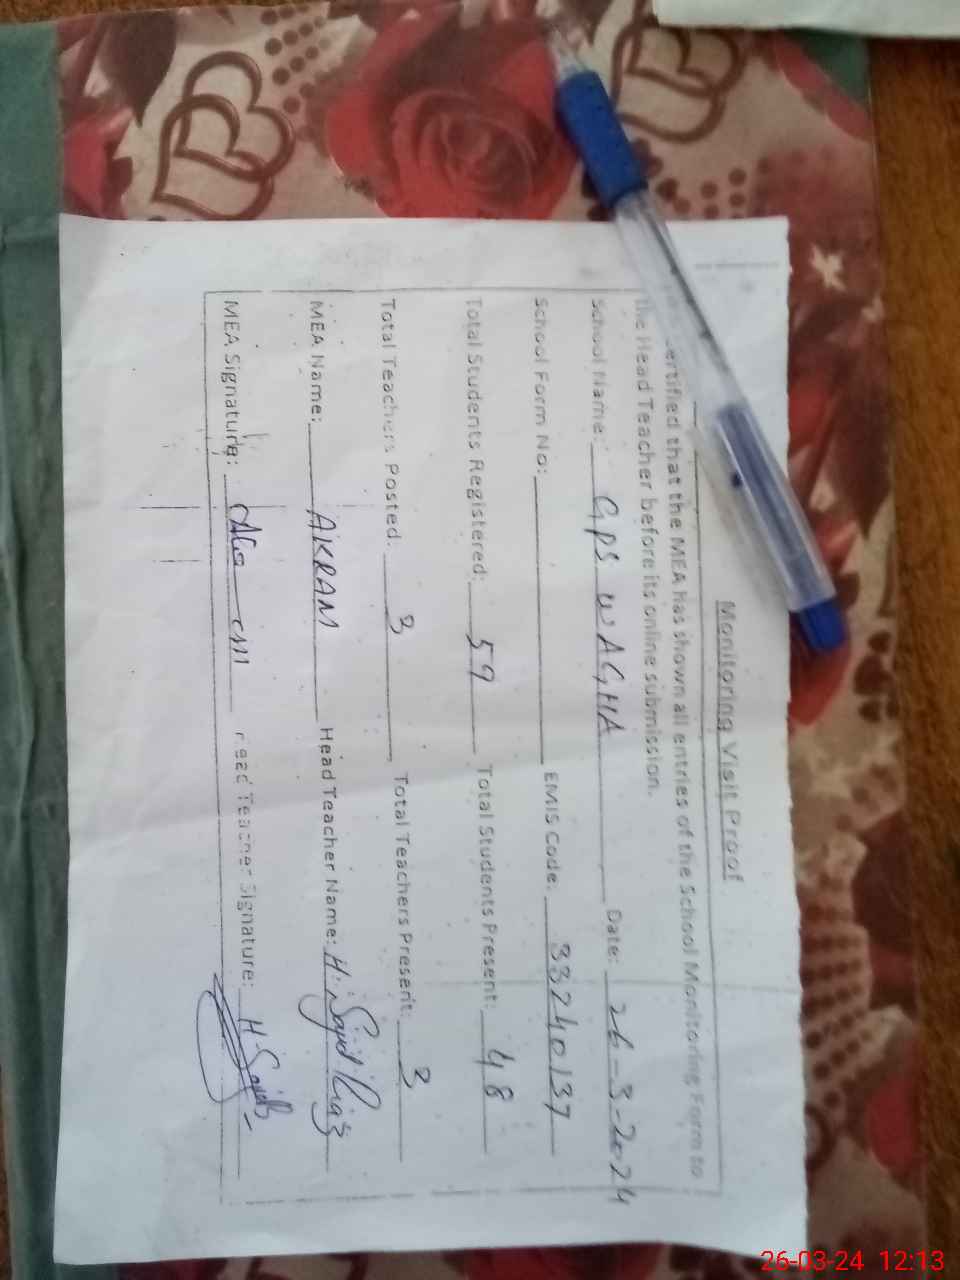 Monitoring Visit Proof
ertified that the MEA has shown all entries of the School Monitoring Form to
the Head Teacher before its online submission.
School Name: GPS WAGHA Date: 26-3-2024
School Form No: EMIS Code: 33240137
Total Students Registered: 59 Total Students Present: 48
Total Teachers Posted: 3 Total Teachers Present: 3
MEA Name: AKRAM Head Teacher Name: H. Sajid Riaz
MEA Signature: Head Teacher Signature: H. Sajid
26-03-24 12:13